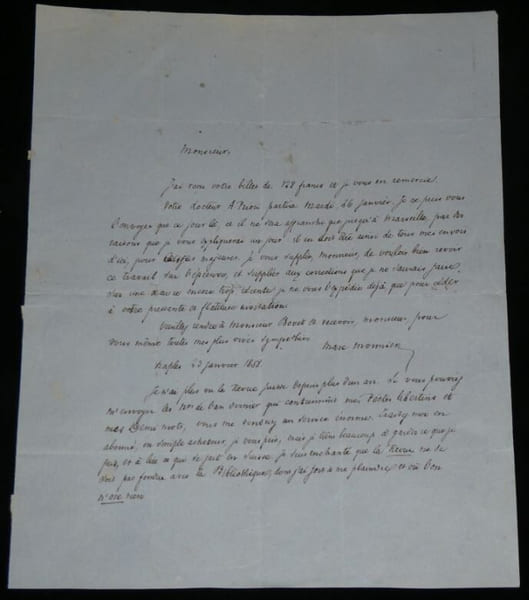 Monsieur,
J'ai reçu votre billet de 128 francs et je vous en remercie.
Votre docteur A Priori partira Mardi 26 janvier. Je ne puis vous
l'envoyer que ce jour là, et il ne sera affranchi que jusqu'à Marseille, par des
raisons que je vous expliquerai un jour. Il en doit être ainsi de tous mes envois
d'ici, pour majeures. Je vous supplie, monsieur, de vouloir bien revoir
ce travail sur l'épreuve, et suppléer aux corrections que je ne saurais faire,
sur une œuvre encore trop récente, je ne vous l'expédie déjà que pour céder
à votre pressante et flatteuse invitation.
Veuillez rendre à Monsieur Bovet et recevoir, monsieur, pour
vous même toutes mes plus vives sympathies
Marc Monnier
Naples 23 janvier 1858.
Je n'ai plus vu la Revue Suisse depuis plus d'un an. Si vous pouviez
m'envoyer les Nos de l'an dernier qui contiennent mes Poètes libertins et
mes Demi mots, vous me rendrez un service énorme. Traitez moi en
abonné, en simple acheteur, je vous prie, mais je tiens beaucoup à garder ce que je
fais, et à lire ce qui se fait en Suisse. Je suis enchanté que la Revue ne se
soit pas fondue avec la Bibliothèque, dont j'ai fort à me plaindre, et où l'on
n'ose rien